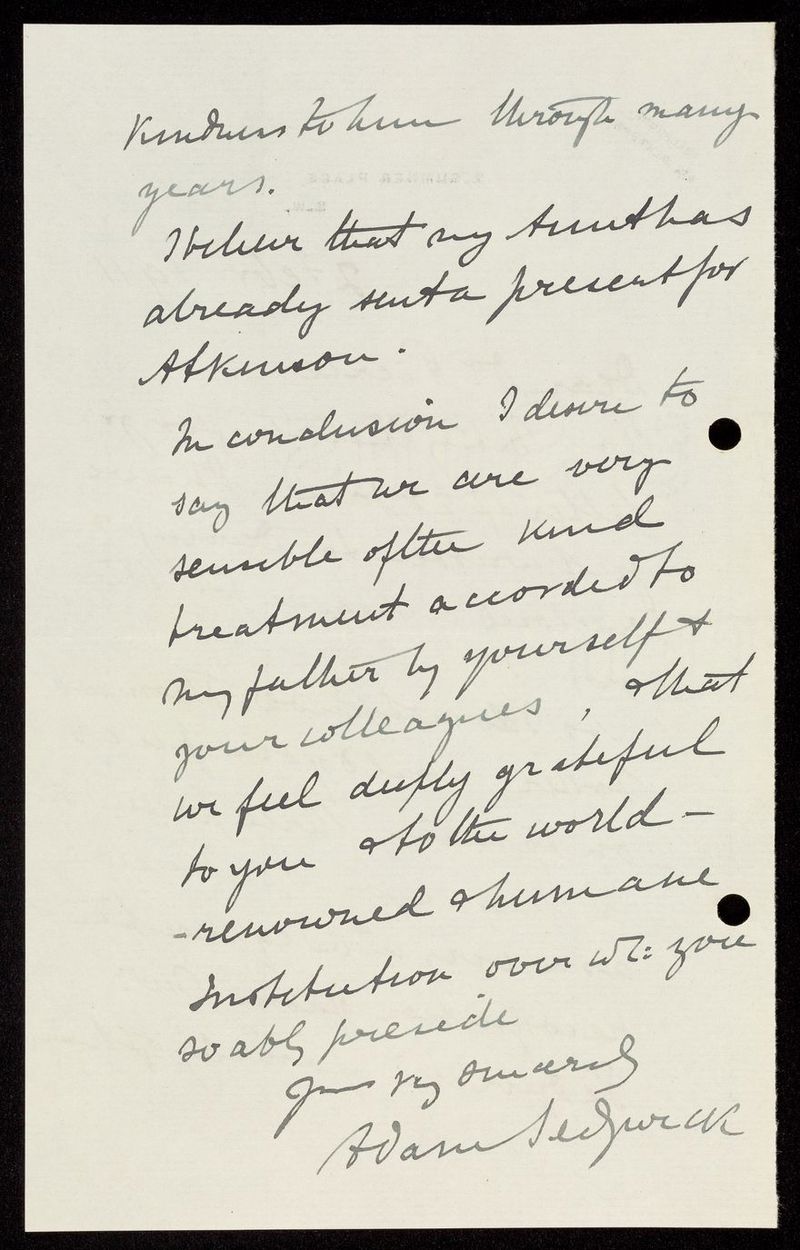 kindness to him through many
years.
I believe that my Aunt has
already sent a present for
Atkinson.
In conclusion I desire to
say that we are very
sensible of the kind
treatment accorded to
my father by yourself &
your colleagues, & that
we feel deeply grateful
to you & to the world-
-renowned & humane
Institution over wh: you
so ably preside
Yours very sincerely
Adam Sedgwick